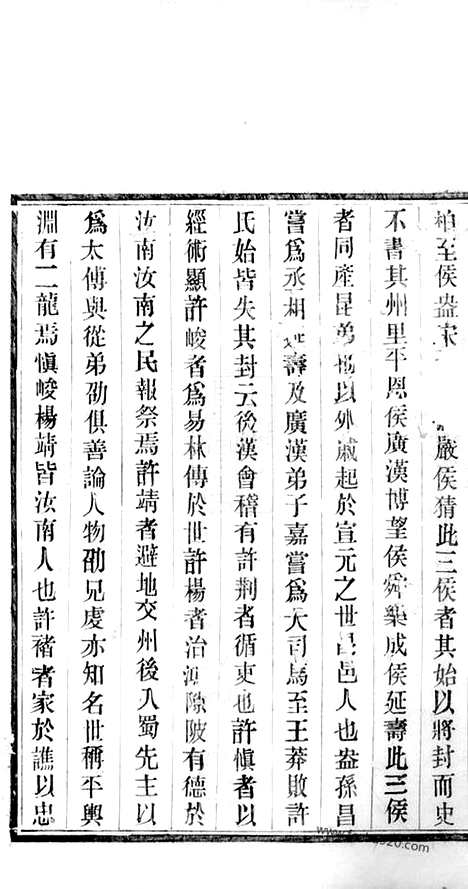 柏至侯盎宋嚴侯猜此三侯者其始以將封而史
不書其州里平恩侯廣漢博望侯舜樂成侯延壽此三侯
者同產昆弟也以外戚起於宣元之世昌邑人也盎孫昌
嘗爲丞相延壽及廣漢弟子嘉嘗爲大司馬至王莽敗許
氏始皆失其封云後漢會稽有許荆者循吏也許愼者以
經術顯許峻者爲易林傳於世許楊者治鴻隙陂有德於
汝南汝南之民報祭焉許靖者避地交州後入蜀先主以
爲太傅與從弟劭俱善論人物劭兄虔亦知名世稱平輿
淵有二龍焉愼峻楊靖皆汝南人也許褚者家於譙以忠